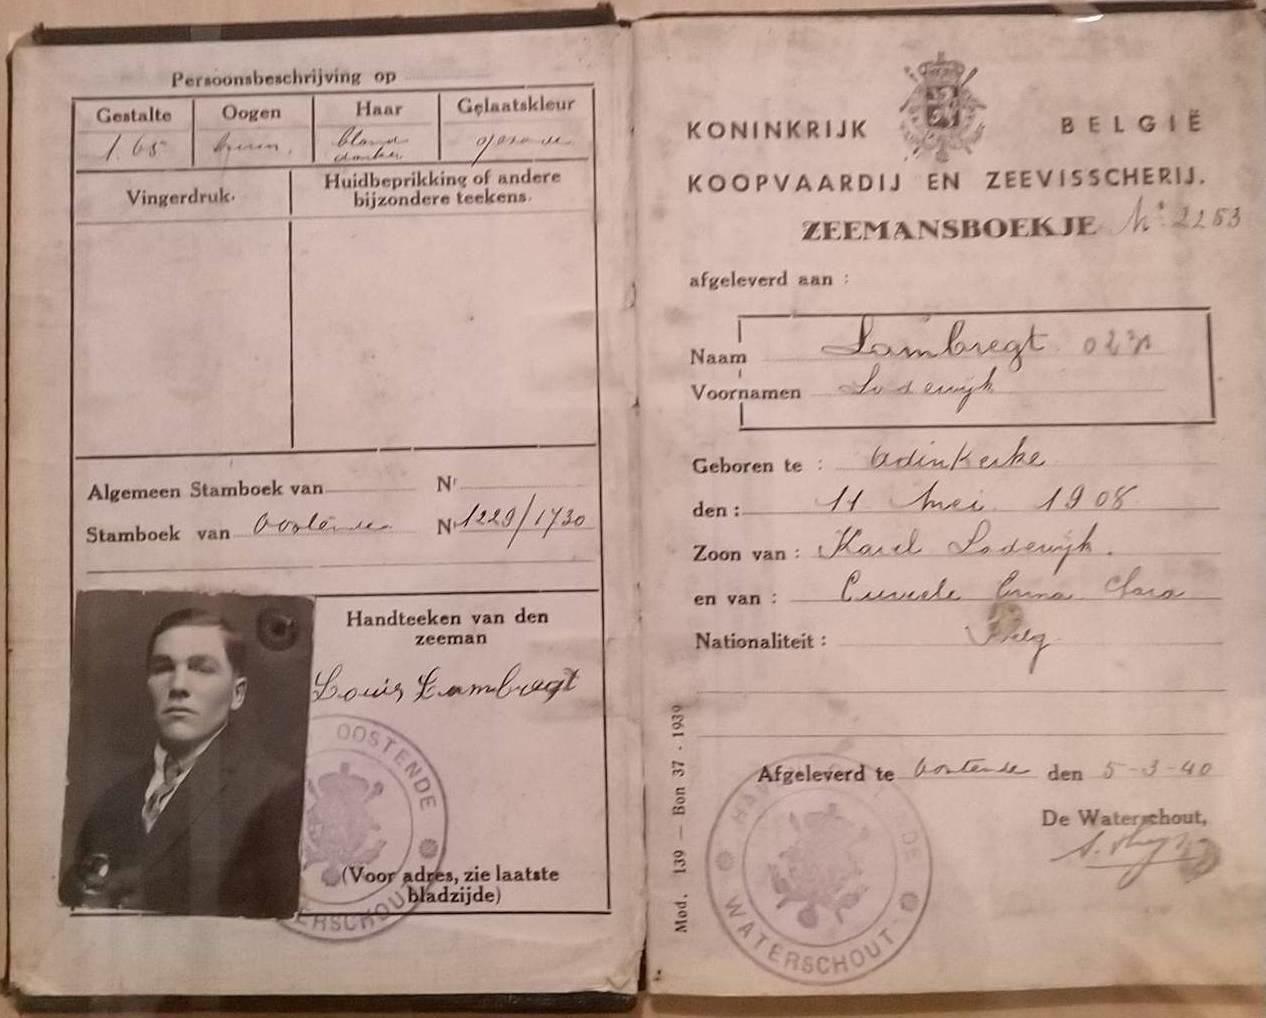 Persoonsbeschrijving op
Gestalte Oogen Haar Gelaatskleur
1.65 bruin. blond
donker
Vingerdruk. Huidbeprikking of andere
bijzondere teekens.
Algemeen Stamboek van N^r
Stamboek van Oostende N^r 1229/1730
Handteeken van den
zeeman
Louis Lambregt
OOSTENDE
WATERSCHOUT
(Voor adres, zie laatste
bladzijde)
KONINKRIJK BELGIË
KOOPVAARDIJ EN ZEEVISSCHERIJ.
ZEEMANSBOEKJE N^r 2253
afgeleverd aan :
Naam Lambregt
Voornamen Lodewijk
Geboren te : Adinkerke
den : 11 Mei 1908
Zoon van : Karel Lodewijk.
en van : Emma Clara
Nationaliteit : Belg
Afgeleverd te Oostende den 5-3-40
De Waterschout,
WATERSCHOUT
Mod. 139 — Bon 37 - 1939